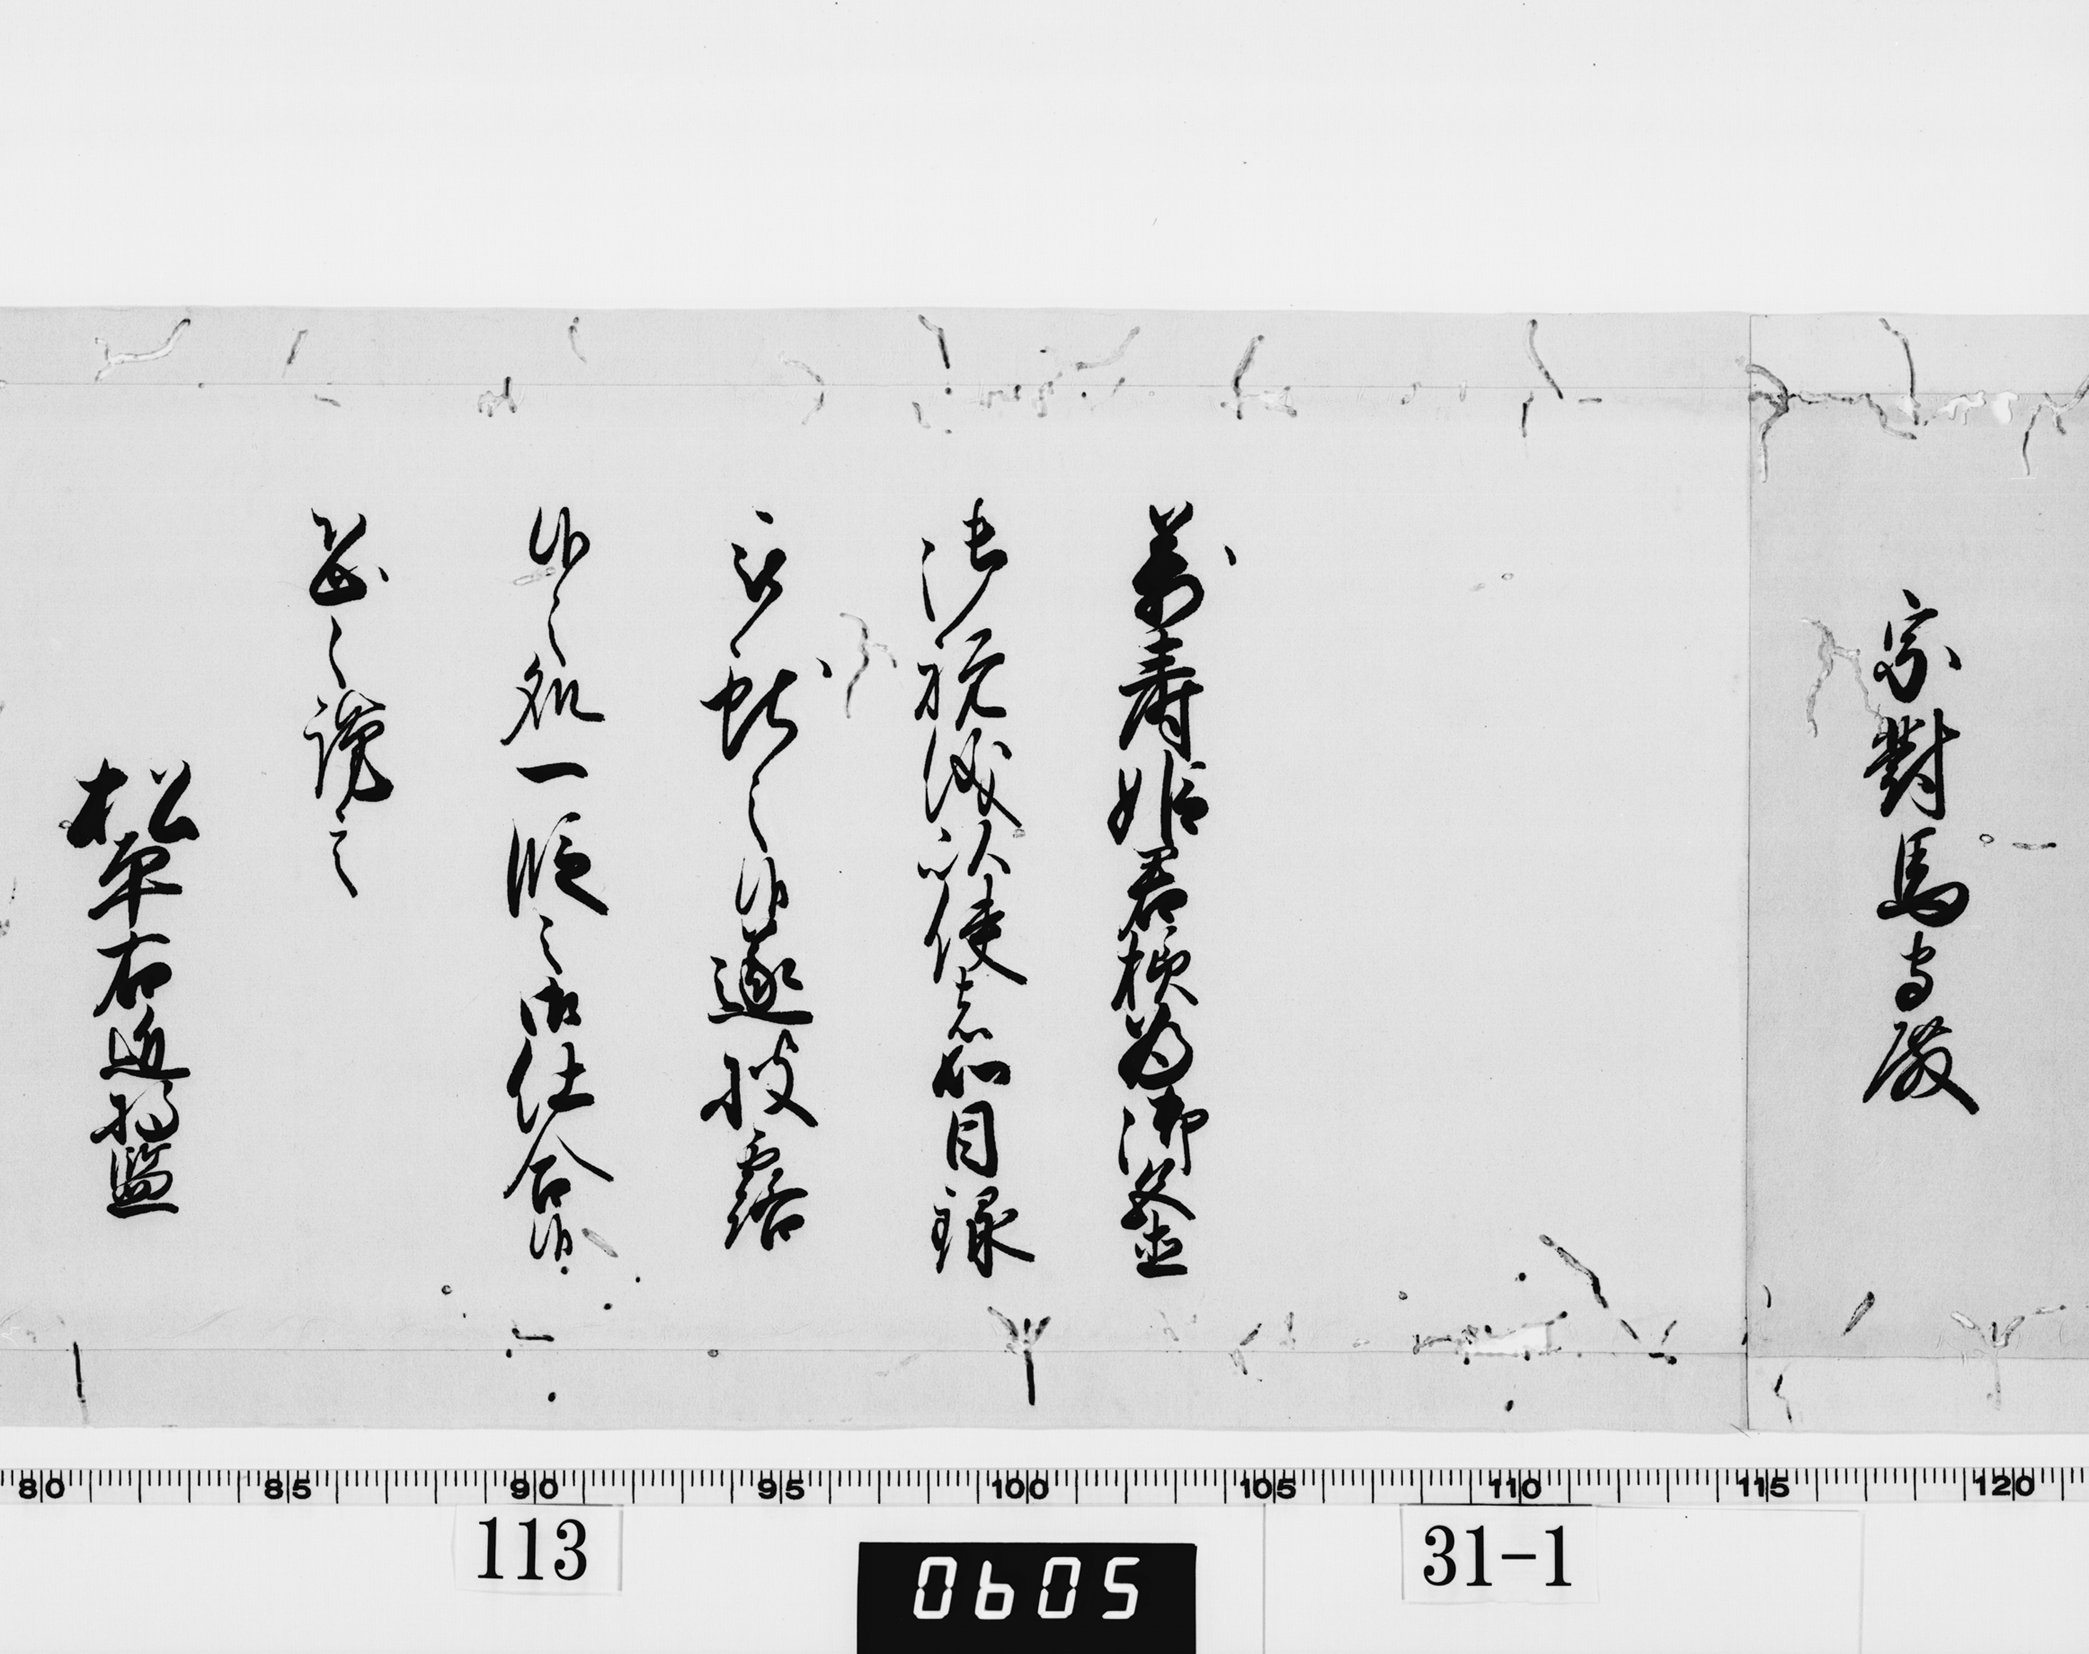 宗對馬守殿
萬壽姫君様為御釜
御祝儀以使者如目録
被獻之候遂披露
候之処一段之御仕合候
恐々謹言
松平右近将監
80 85 90 95 100 105 110 115 120
113
0605
31-1